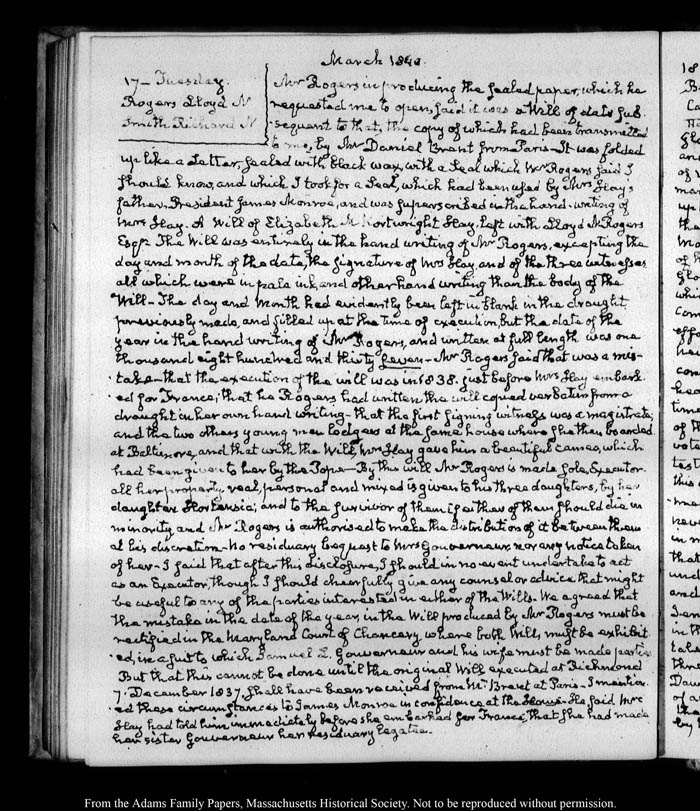 March 1840.
17 – Tuesday.
Rogers Lloyd N
Smith Richard N
Mr Rogers in producing the sealed paper, which he
requested me to open, said it was a Will of date sub-
-sequent to that, the copy of which had been transmitted
to me, by Mr Daniel Brent from Paris – It was folded
up like a Letter, sealed with black wax, with a Seal which Mr Rogers said I
should know, and which I took for a Seal, which had been used by Mrs Hay's
father, President James Monroe, and was superscribed in the hand-writing of
Mrs Hay. A Will of Elizabeth K Hay. left with Lloyd N Rogers
Esqr. The Will was entirely in the hand writing of Mr Rogers, excepting the
day and month of the date, the signature of Mrs Hay, and of the three witnesses
all which were in pale ink, and other hand writing than the body of the
Will – The day and Month had evidently been left in blank in the draught,
previously made, and filled up at the time of execution, but the date of the
year in the hand writing of Mr Rogers, and written at full length was one
thousand eight hundred and thirty seven – Mr Rogers said that was a mis-
-take – that the execution of the will was in 1838. just before Mrs Hay embark-
-ed for France; that he Rogers had written the will copied verbatim from a
draught in her own hand writing – that the first signing witness was a magistrate;
and the two others young men lodgers at the same house where she then boarded
at Baltimore, and that with the Will, Mrs Hay gave him a beautiful cameo, which
had been given to her by the Pope – By this will Mr Rogers is made sole Executor.
all her property, real, personal and mixed is given to his three daughters, by her
daughter Hortensia; and to the survivor of them if either of them should die in
minority and Mr Rogers is authorised to make the distribution of it between them
at his discretion – No residuary bequest to Mrs Gouverneur, nor any notice taken
of her – I said that after this disclosure, I should in no event undertake to act
as an Executor, though I should cheerfully give any counsel or advice that might
be useful to any of the parties interested in either of the Wills. We agreed that
the mistake in the date of the year, in the Will produced by Mr Rogers must be
rectified in the Maryland Court of Chancery where both Wills, must be exhibit-
-ed, in a suit to which Samuel L. Gouverneur and his wife must be made parties
But that this cannot be done until the original Will executed at Richmond
7. December 1837. shall have been received from Mr Brent at Paris – I mention-
-ed these circumstances to James Monroe in confidence, at the House – He said Mrs
Hay had told him immediately before she embarked for France, that she had made
her sister Gouverneur her Residuary legatee.
From the Adams Family Papers, Massachusetts Historical Society. Not to be reproduced without permission.